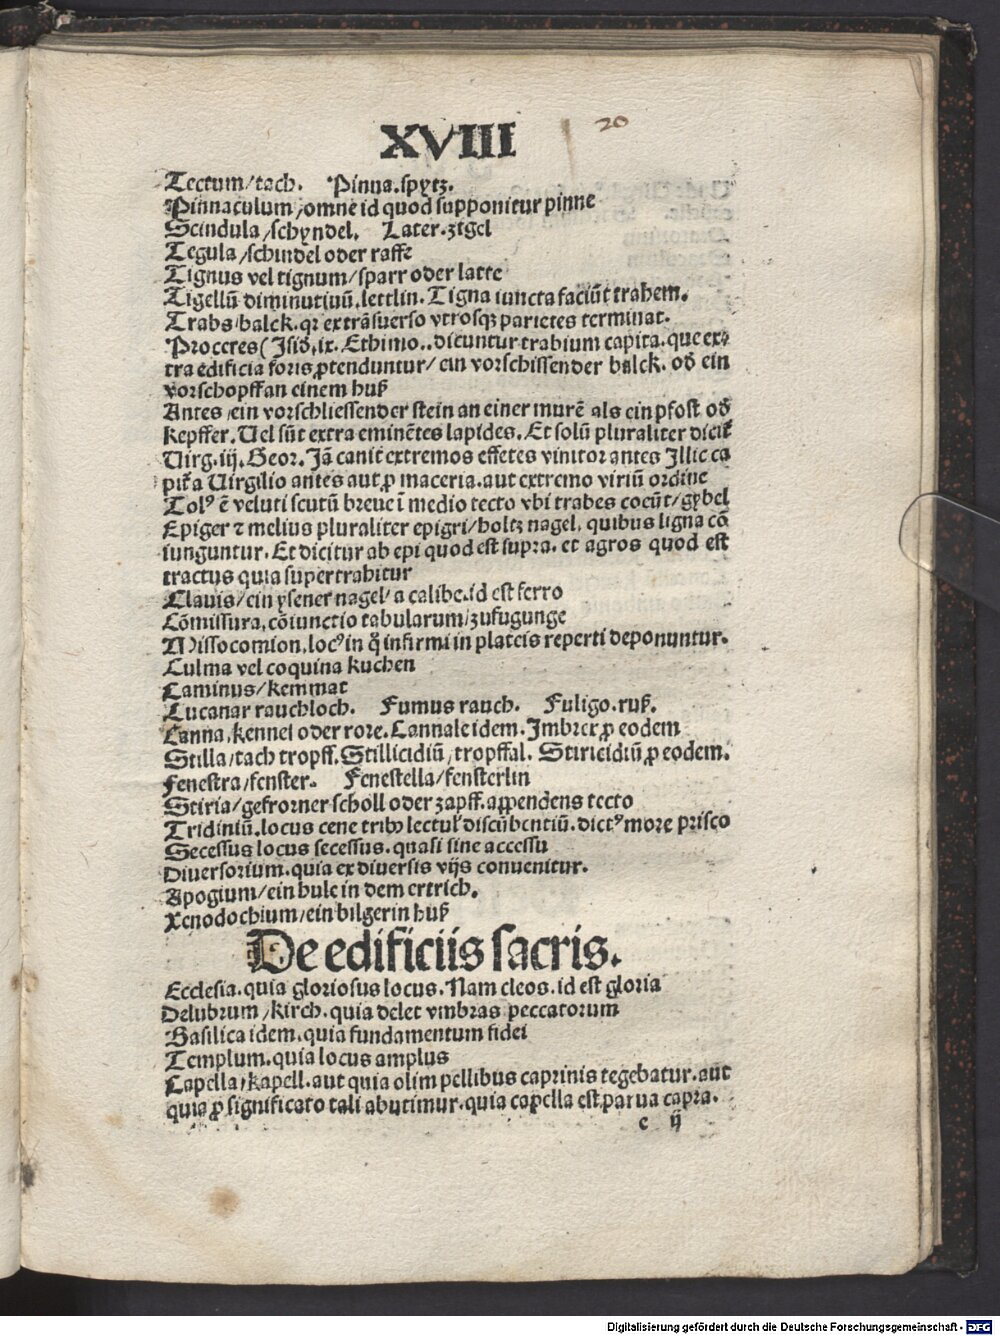 XVIII
20
Tectum/tach. Pinna.spytz.
Pinnaculum/omne id quod supponitur pinne
Scindula/schyndel. Later.zigel
Tegula/schindel oder raffe
Tignus vel tignum/sparr oder latte
Tigellū diminutivū.lettlin.Tigna iuncta faciūt trabem.
Trabs/balck.qr extrāsuerso vtrosqʒ parietes terminat.
Proceres(Isid̄.ix.Ethimo..dicuntur trabium capita.que ex⸗
tra edificia foris ꝓtenduntur/ein vorschissender balck.od̄ ein
vorschopff an einem huß
Antes/ein vorschliessender stein an einer murē als ein pfost od̄
kepffer.Uel sūt extra eminētes lapides.Et solū pluraliter dicit̄
Uirg.iij.Geor.Jā canit extremos effetes vinitor antes Illic ca
pit̄a Uirgilio antes aut ꝓ maceria.aut extremo viriū ordine
Tolꝰ ē veluti scutū breue ī medio tecto vbi trabes coeūt/gybel
Epiger ⁊ melius pluraliter epigri/holtz nagel.quibus ligna cō
iunguntur.Et dicitur ab epi quod est supra.et agros quod est
tractus quia supertrahitur
Clauis/ein ysener nagel/a calibe.id est ferro
Cōmissura.cōiunctio tabularum/zufugunge
Missocomion.locꝰ in q̄ infirmi in plateis reperti deponuntur.
Culma vel coquina kuchen
Caminus/kemmat
Lucanar rauchloch. Fumus rauch. Fuligo.ruß.
Canna,kennel oder rore.Cannale idem.Imbrex ꝓ eodem
Stilla/tach tropff.Stillicidiū/tropffal.Stiricidiū ꝓ eodem.
Fenestra/fenster. Fenestella/fensterlin
Stiria/gefrorner scholl oder zapff.appendens tecto
Tridiniū.locus cene tribꝰ lectul' discūbentiū.dictꝰ more prisco
Secessus locus secessus.quasi sine accessu
Diuersorium.quia ex diuersis vijs conuenitur.
Apogium/ein hule in dem ertrich.
Xenodochium/ein bilgerin huß
De edificiis sacris.
Ecclesia.quia gloriosus locus.Nam cleos.id est gloria
Delubrum/kirch.quia delet vmbras peccatorum
Basilica idem.quia fundamentum fidei
Templum.quia locus amplus
Capella/kapell.aut quia olim pellibus caprinis tegebatur.aut
quia ꝓ significato tali abutimur.quia capella est parua capra.
c ij
Digitalisierung gefördert durch die Deutsche Forschungsgemeinschaft - DFG